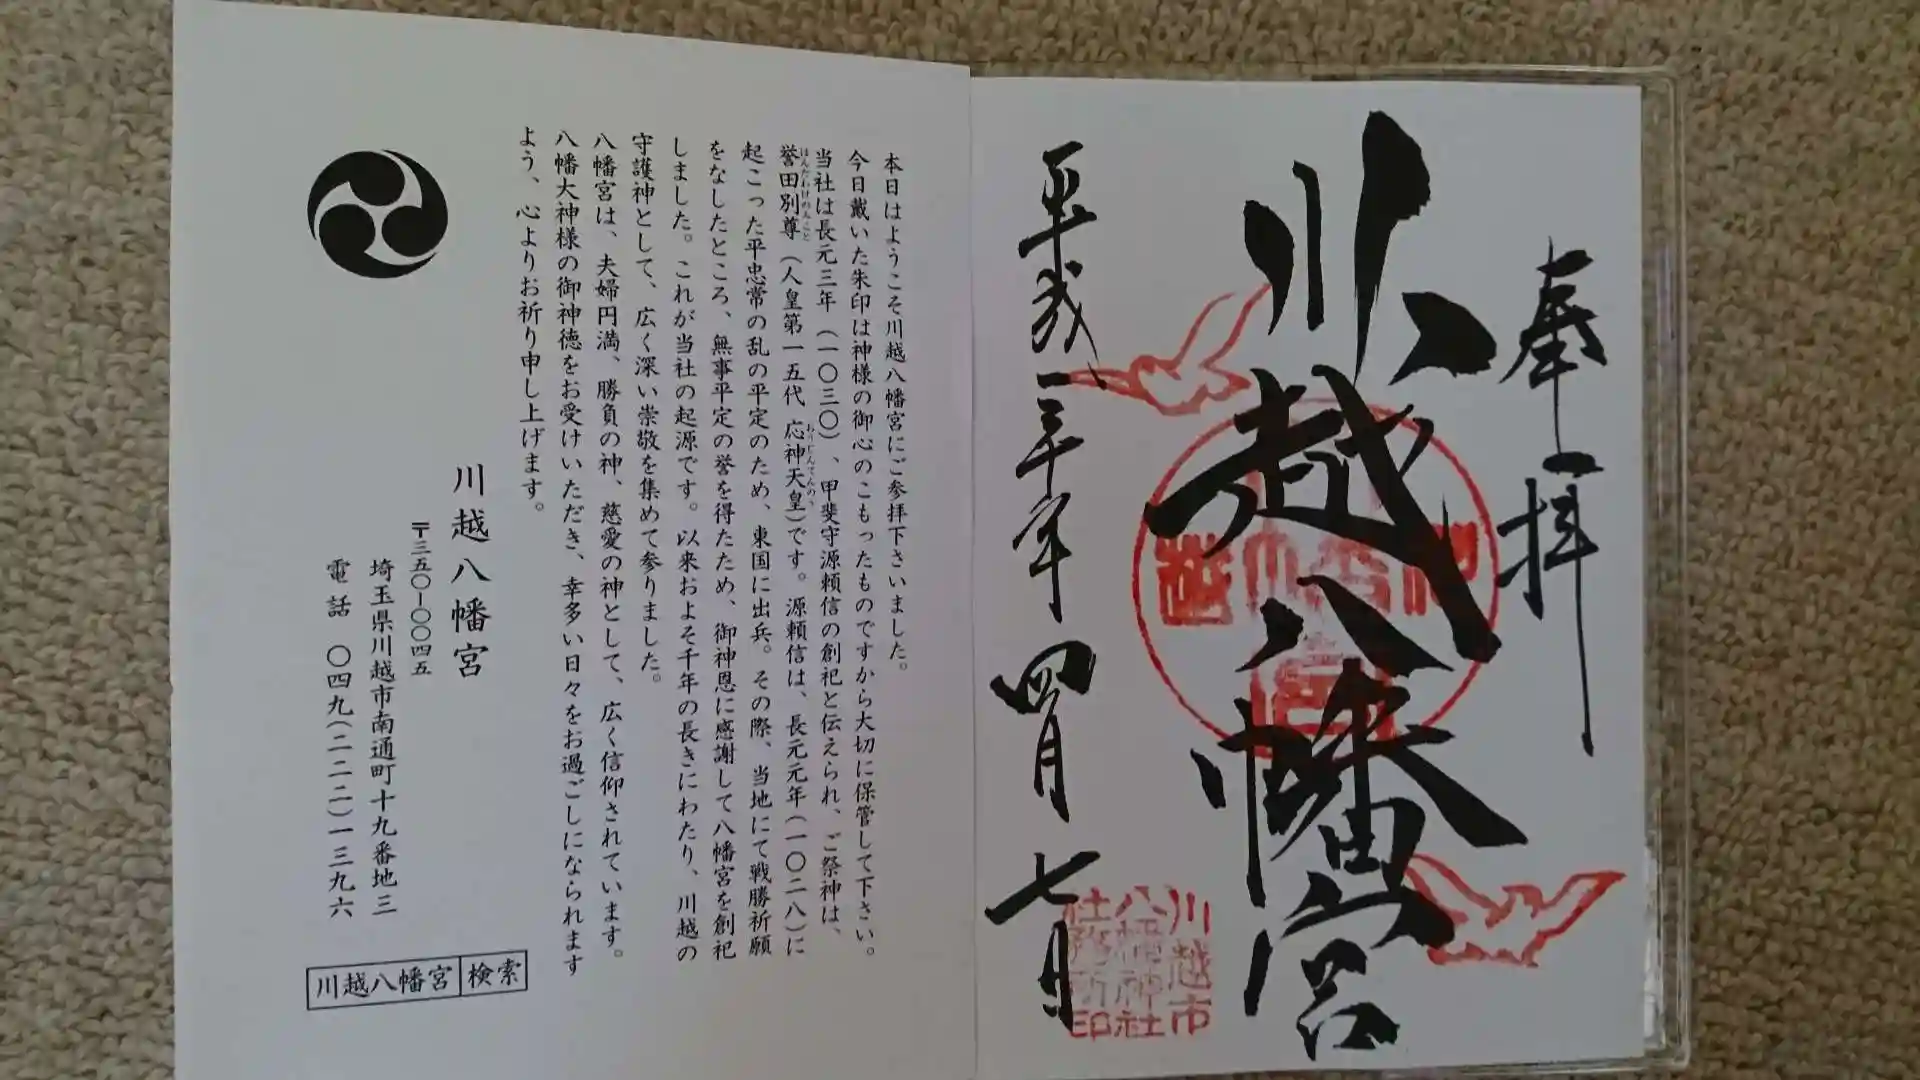 奉拝
川越八幡宮
平成三十年四月七日
川越市
八幡神社
社務所印
本日はようこそ川越八幡宮にご参拝下さいました。
今日戴いた朱印は神様の御心のこもったものですから大切に保管して下さい。
当社は長元三年(一〇三〇)、甲斐守源頼信の創祀と伝えられ、ご祭神は、
誉田別尊(人皇第一五代 応神天皇)です。源頼信は、長元元年(一〇二八)に
ほんだわけのみこと
おうじんてんのう
起こった平忠常の乱の平定のため、東国に出兵。その際、当地にて戦勝祈願
をなしたところ、無事平定の誉を得たため、御神恩に感謝して八幡宮を創祀
しました。これが当社の起源です。以来およそ千年の長きにわたり、川越の
守護神として、広く深い崇敬を集めて参りました。
八幡宮は、夫婦円満、勝負の神、慈愛の神として、広く信仰されています。
八幡大神様の御神徳をお受けいただき、幸多い日々をお過ごしになられます
よう、心よりお祈り申し上げます。
川越八幡宮
〒三五〇-〇〇四五
埼玉県川越市南通町十九番地三
電話 〇四九(二二二)一三九六
川越八幡宮 検索